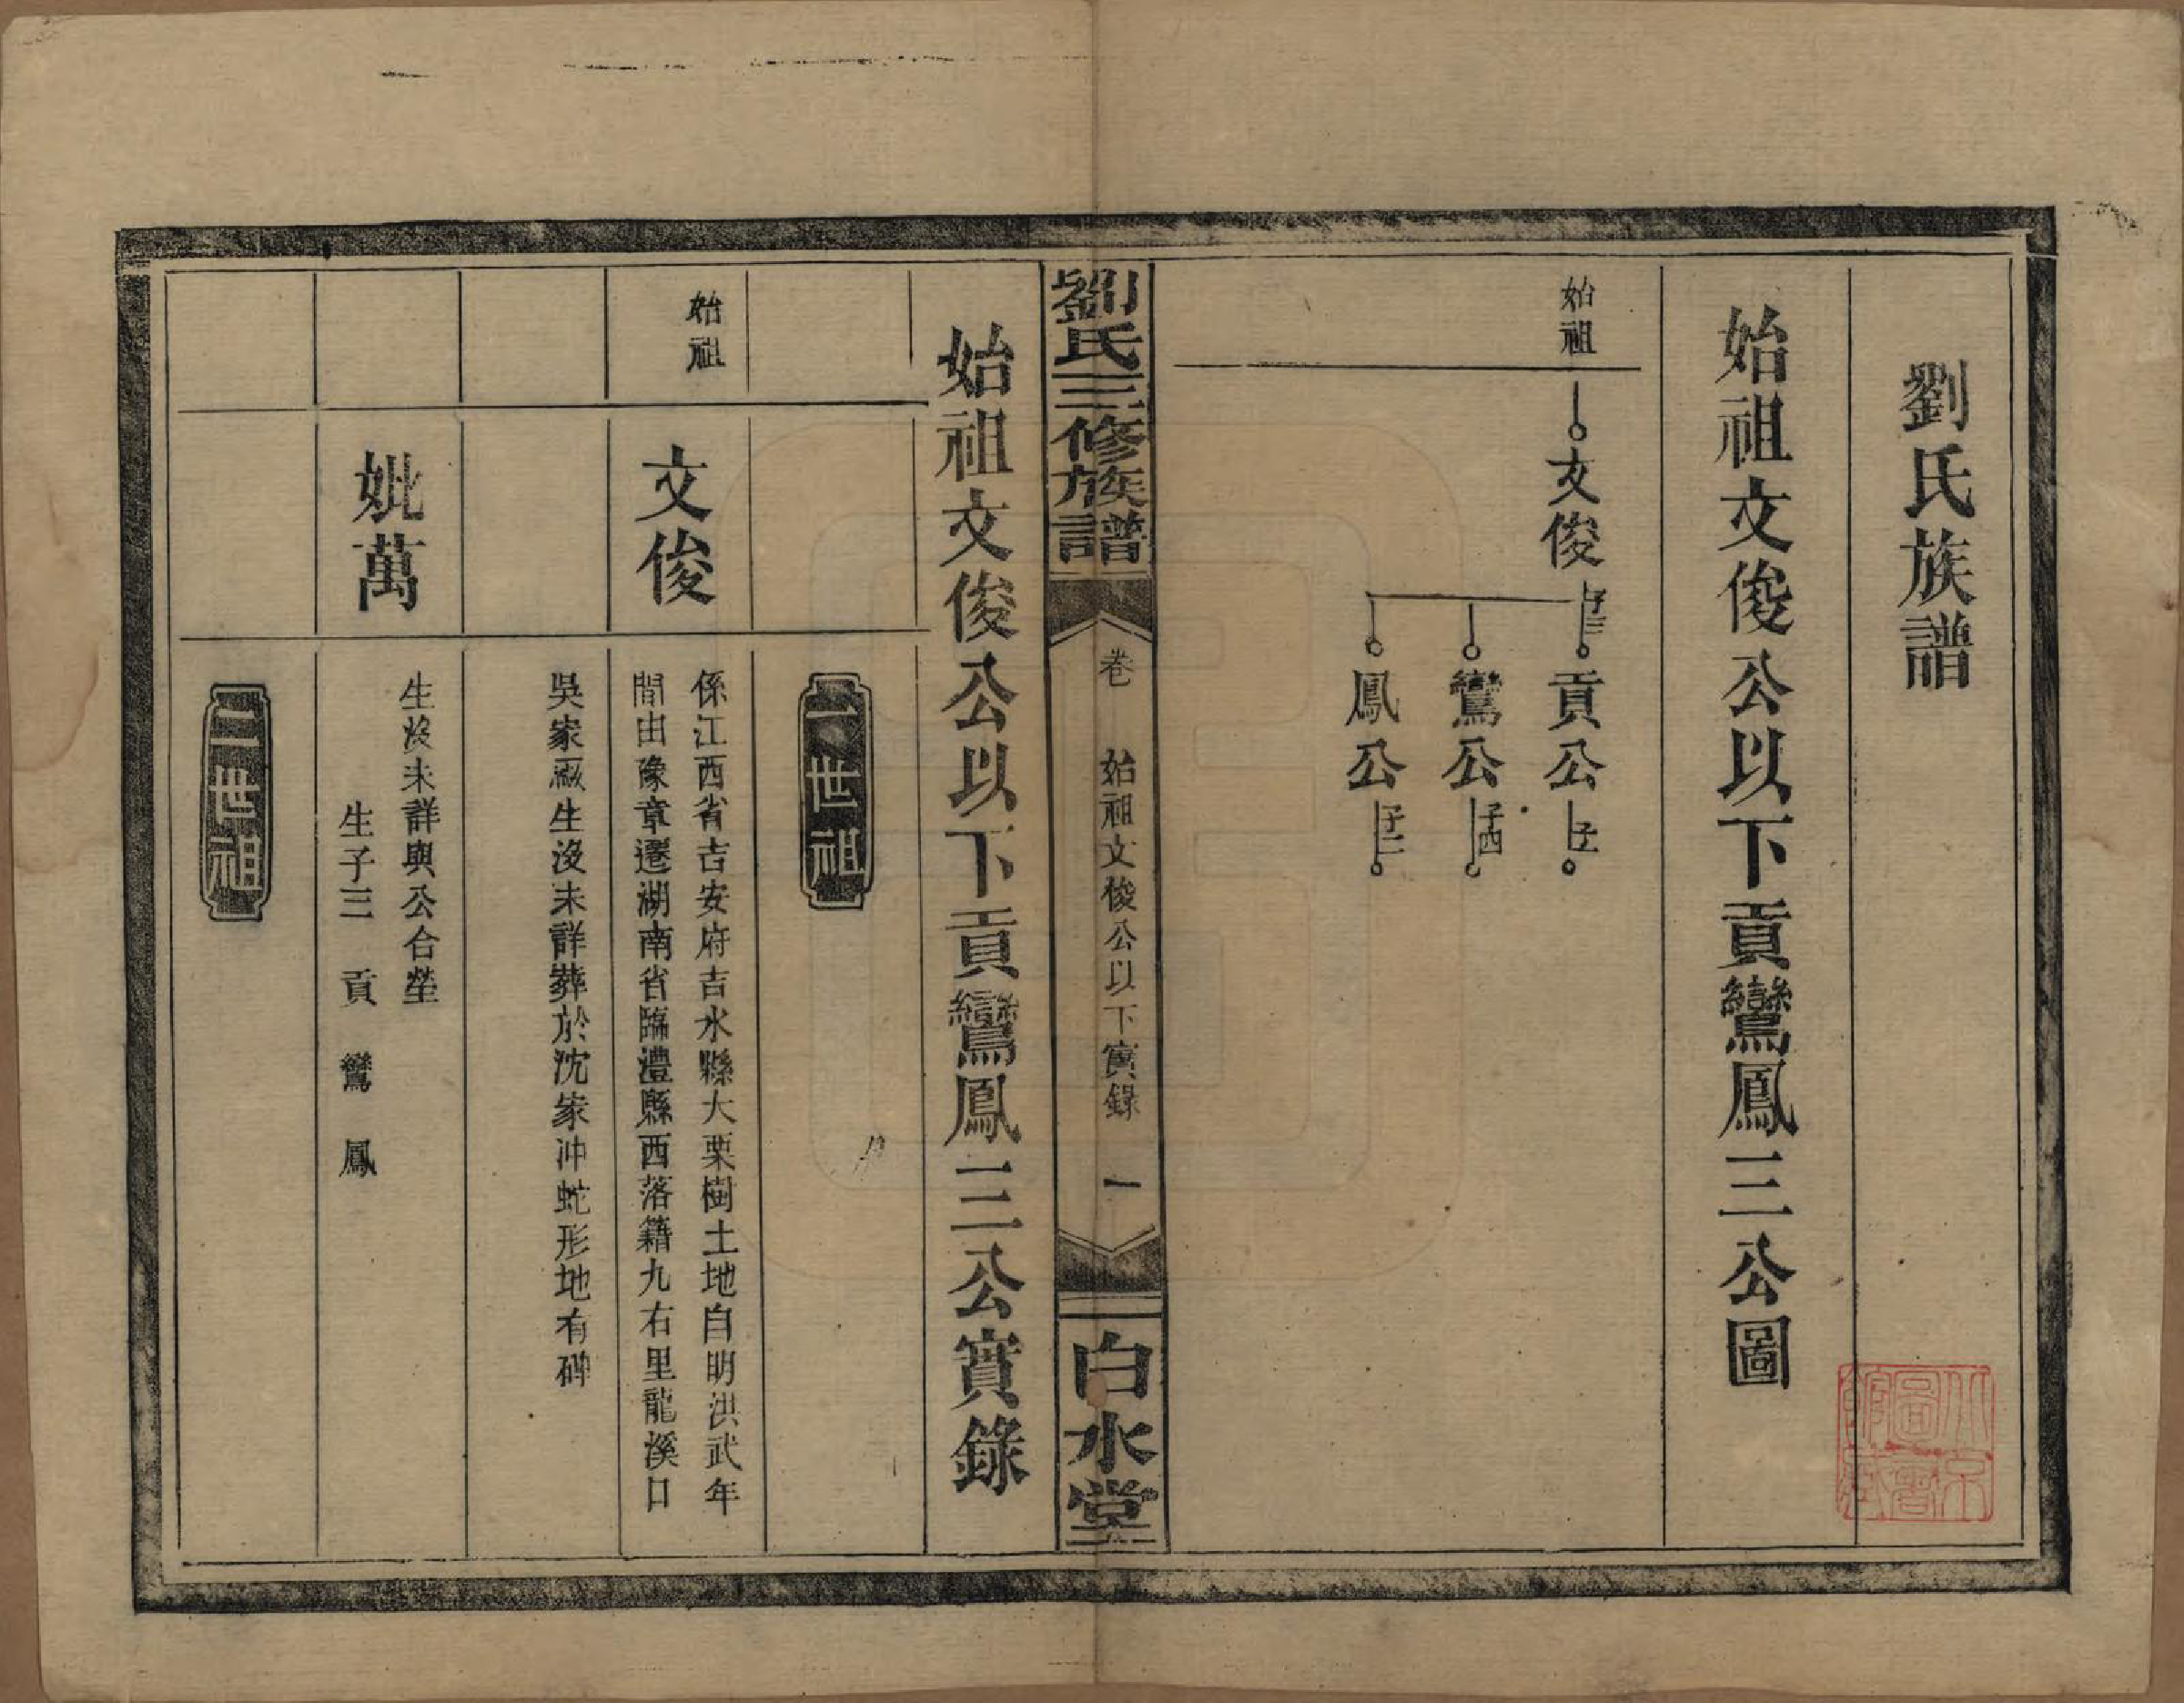 劉氏族譜
始祖文俊公以下貢鸞鳳三公圖
始祖
文俊
子三
貢公
子一
鸞公
子四
鳳公
子二
劉氏三修族譜
卷
始祖文俊公以下實錄
一
白水堂
始祖文俊公以下貢鸞鳳三公實錄
一世祖
始祖
文俊
係江西省吉安府吉水縣大栗樹土地自明洪武年
間由豫章遷湖南省臨澧縣西落籍九右里龍溪口
吳家廠生沒未詳葬於沈家冲蛇形地有碑
妣萬
生沒未詳與公合塋
生子三 貢 鸞 鳳
二世祖
北京圖書館藏